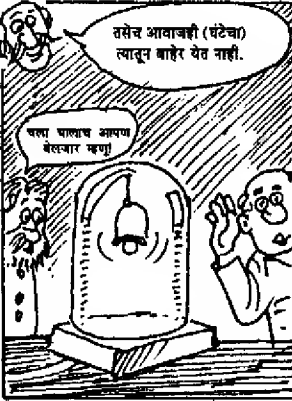 तसेच आवाजही (घंटेचा)
त्यातून बाहेर येत नाही.
चला यालाच आपण
बेलजार म्हणू!